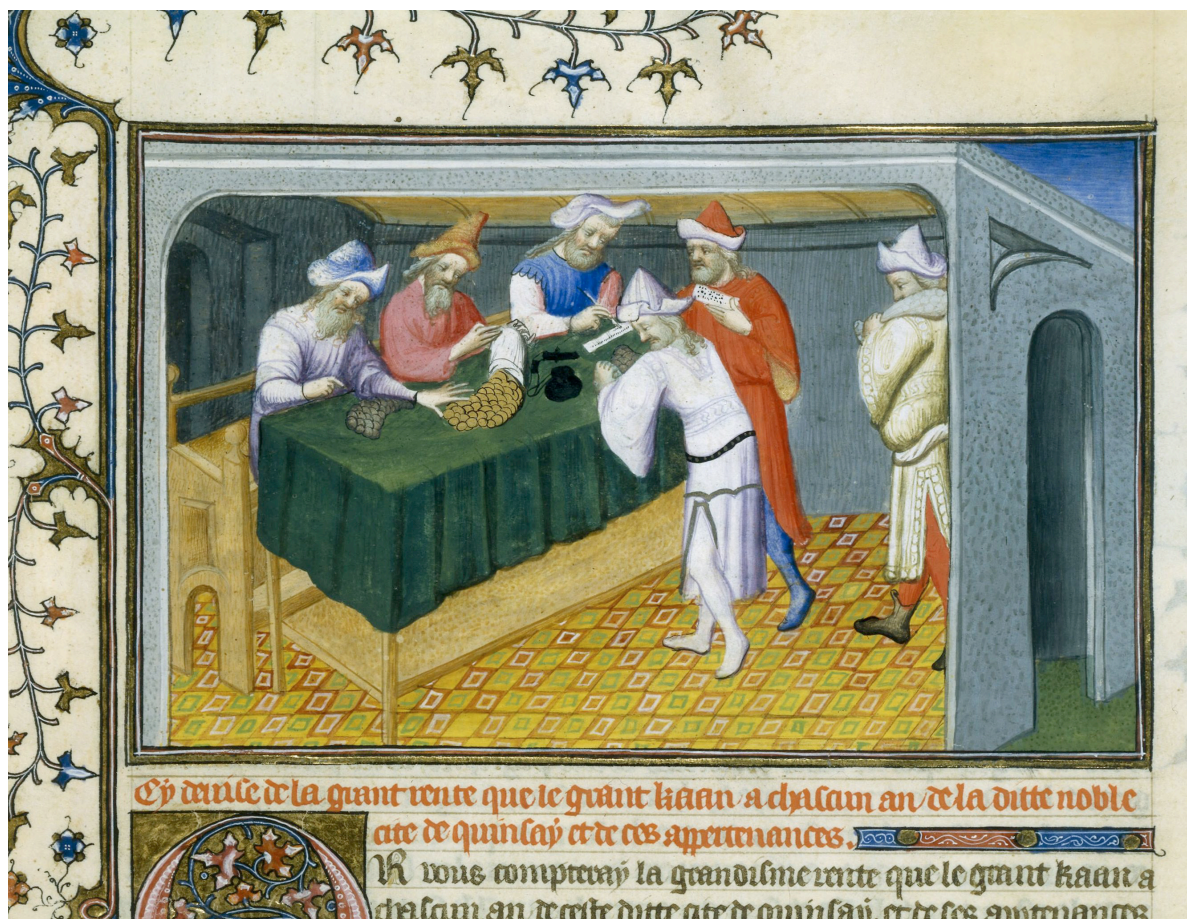 Cy deuise de la grant rente que le grant kaan a chascun an de la ditte noble
cite de quinsay et de ces appertenances.
OR vous compteray la grandisme rente que le grant kaan a
chascun an de ceste ditte cite de quinsay et de ses apertenances